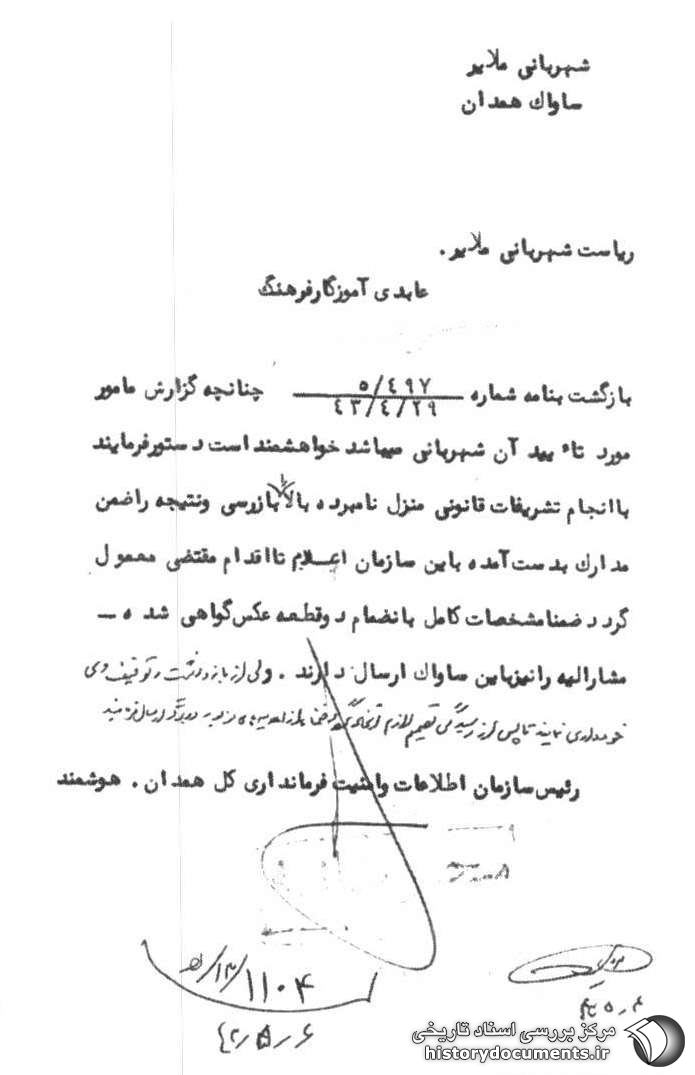 شهربانی ملایر
ساواك همدان
ریاست شهربانی ملایر.
عابدی آموزگار فرهنگ
بازگشت بنامه شماره ٥/٤٩٧ چنانچه گزارش مامور
٤٣/٤/٢٩
مورد تاء یید آن شهربانی میباشد خواهشمند است دستور فرمایند
با انجام تشریفات قانونی منزل نامبرده بالا بازرسی ونتیجه راضمن
مدارك بدست آمده باین سازمان اعلام تا اقدام مقتضی معمول
گردد ضمنا مشخصات کامل بانضمام دوقطعه عکس گواهی شده ــ
مشارالیه رانیز باین ساواك ارسال دارند . ولی از بازداشت و توقیف وی
خودداری نمایند تا پس از رسیدگی تصمیم لازم اتخاذ گردد
رئیس سازمان اطلاعات وامنیت فرمانداری کل همدان . هوشمند
١١٠۴
مرکز بررسی اسناد تاریخی
historydocuments.ir